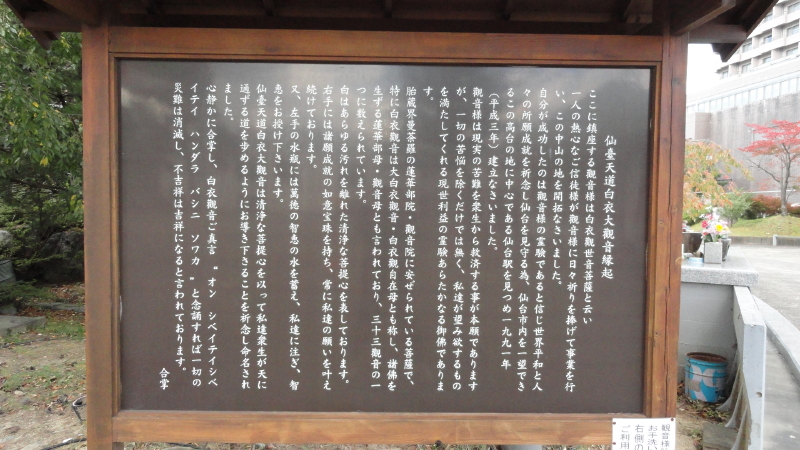 仙臺天道白衣大觀音緣起
ここに鎮座する観音様は白衣觀世音菩薩と云い
一人の熱心なご信徒様が観音様に日々祈りを捧げて事業を行
い、この中山の地を開拓なさいました。
自分が成功したのは観音様の霊験であると信じ世界平和と人
々の所願成就を祈念し仙台を見守る為、仙台市内を一望でき
るこの高台の地に中心である仙台駅を見つめ一九九一年
（平成三年）建立なさいました。
觀音様は現実の苦難を衆生から救済する事が本願であります
が、一切の苦悩を除くだけでは無く、私達が望み欲するもの
を満たしてくれる現世利益の霊験あらたかなる御佛でありま
す。
胎蔵界曼荼羅の蓮華部院・觀音院に安ぜられている菩薩で、
特に白衣觀音は大白衣觀音・白衣觀自在母とも称し、諸佛を
生ずる蓮華部母・觀音母とも言われており、三十三觀音の一
つに数えられています。
白はあらゆる汚れを離れた清浄な菩提心を表しております。
右手には諸願成就の如意宝珠を持ち、常に私達の願いを叶え
続けております。
又、左手の水瓶には萬徳の智恵の水を蓄え、私達に注ぎ、智
恵をお授け下さいます。
仙臺天道白衣大觀音は清浄な菩提心を以って私達衆生が天に
通ずる道を歩めるようにお導き下さることを祈念し命名され
ました。
心静かに合掌し、白衣觀音ご真言 〝オン シベイテイシベ
イテイ ハンダラ バシニ ソワカ〟と念誦すれば一切の
災難は消滅し、不吉祥は吉祥になると言われております。
合掌
観音様
お手洗い
右側の
ご利用